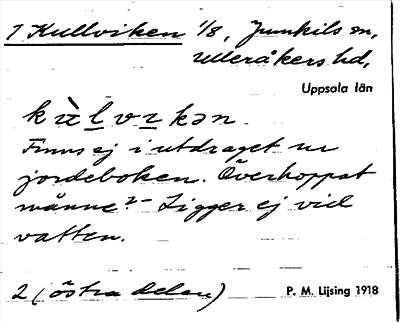 1 Kullviken 1/8, Jumkils sn,
Ulleråkers hd,
Uppsala län
kùlvɪkən.
Finns ej i utdraget ur
jordeboken. Överhoppat
månne? – Ligger ej vid
vatten.
2 (östra delen) P. M. Lijsing 1918